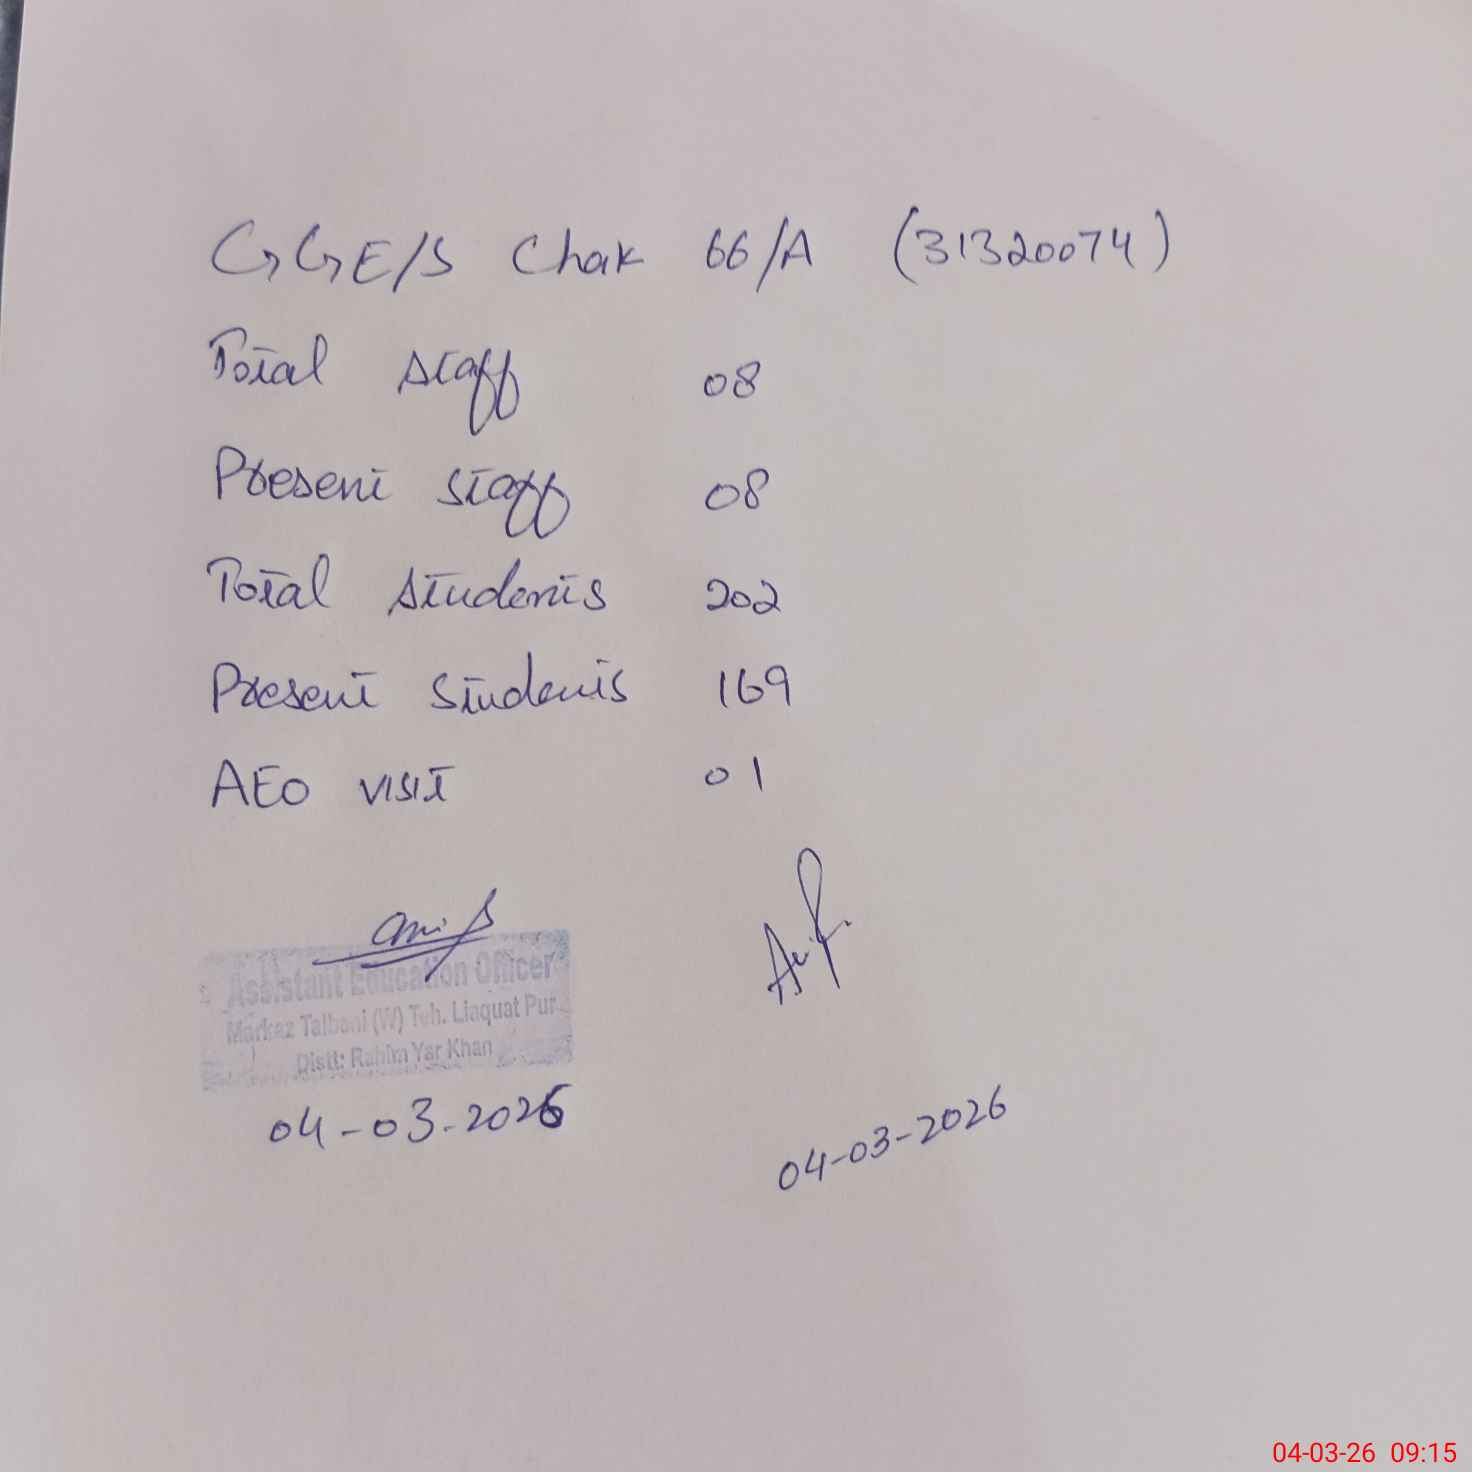 GGE/S Chak 66/A (31320074)
Total staff 08
Present staff 08
Total students 202
Present students 169
AEO visit 01
Assistant Education Officer
Markaz Talbani (W) Teh. Liaquat Pur
Distt: Rahim Yar Khan
04-03-2026
04-03-2026
04-03-26 09:15